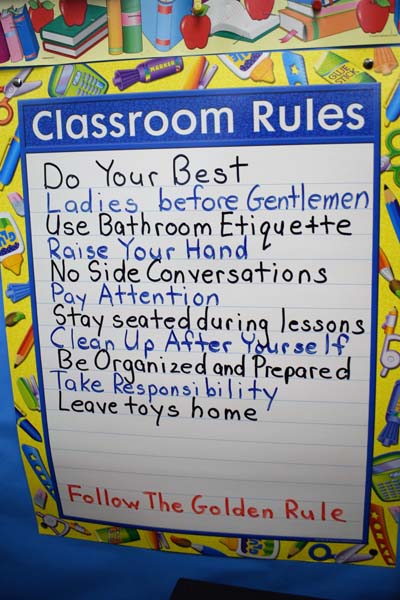 Classroom Rules
Do Your Best
Ladies before Gentlemen
Use Bathroom Etiquette
Raise Your Hand
No Side Conversations
Pay Attention
Stay seated during lessons
Clean Up After Yourself
Be Organized and Prepared
Take Responsibility
Leave toys home
Follow The Golden Rule